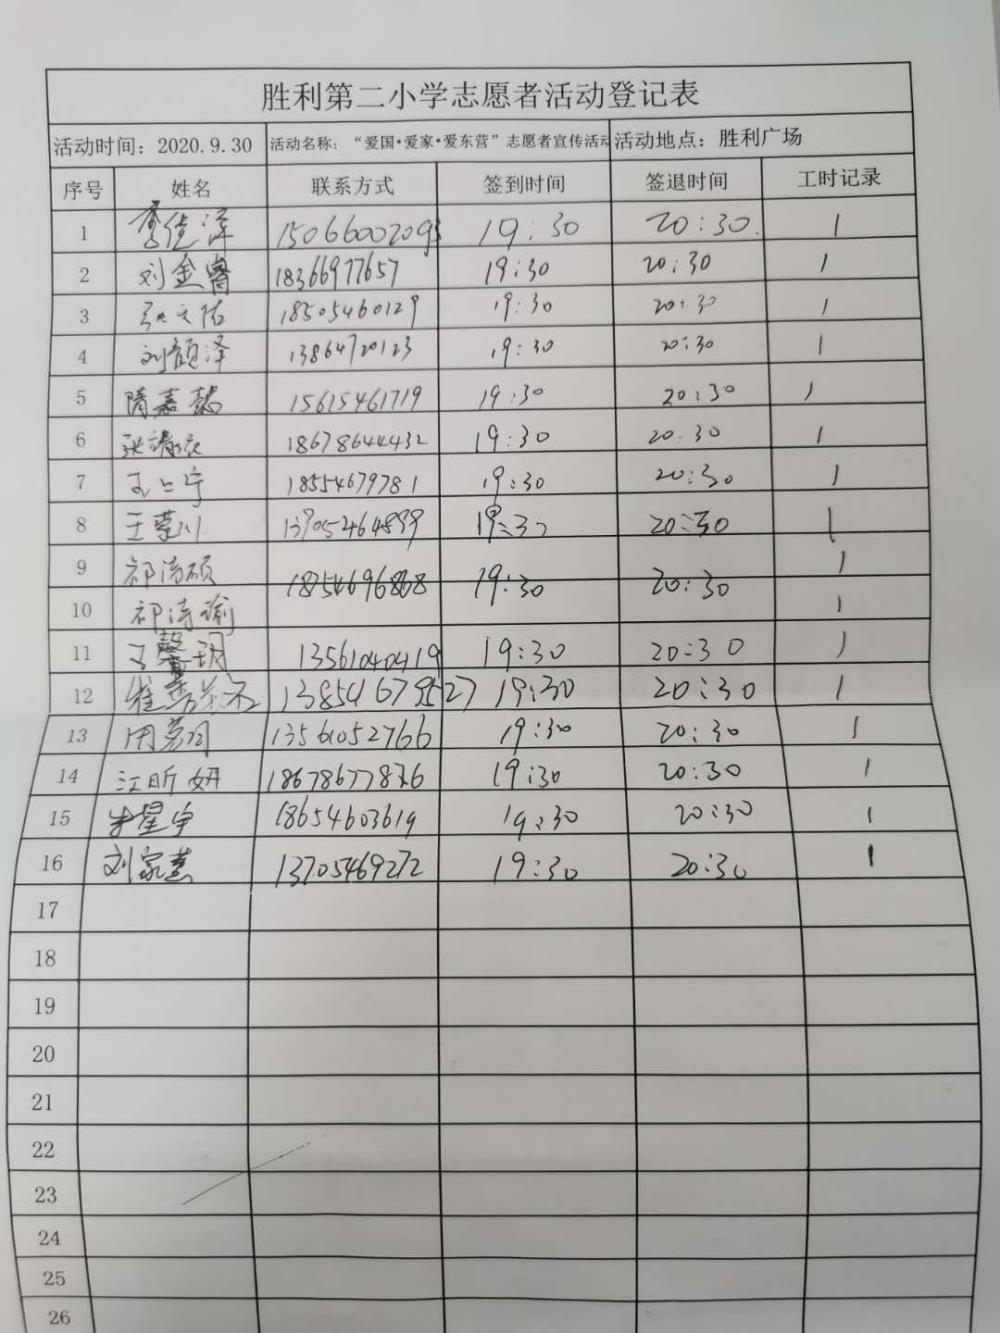 胜利第二小学志愿者活动登记表
活动时间：2020.9.30 活动名称：“爱国·爱家·爱东营”志愿者宣传活动 活动地点：胜利广场
序号 姓名 联系方式 签到时间 签退时间 工时记录
1 李佳泽 15066002093 19:30 20:30. 1
2 刘金睿 18366977657 19:30 20:30 1
3 18505460129 19:30 20:30 1
4 刘颜泽 13864720123 19:30 20:30 1
5 隋嘉懿 15615461719 19:30 20:30 1
6 18678644432 19:30 20:30 1
7 18554679781 19:30 20:30 1
8 王莹川 13905464899 19:30 20:30 1
9 祁涛硕 18754696868 19:30 20:30 1
10 祁涛瑜 1
11 王馨玥 13561040419 19:30 20:30 1
12 19:30 20:30 1
13 周茗羽 13561052766 19:30 20:30 1
14 江昕妍 18678677876 19:30 20:30 1
15 朱星宇 18654603619 19:30 20:30 1
16 刘家慧 13705469272 19:30 20:30 1
17
18
19
20
21
22
23
24
25
26